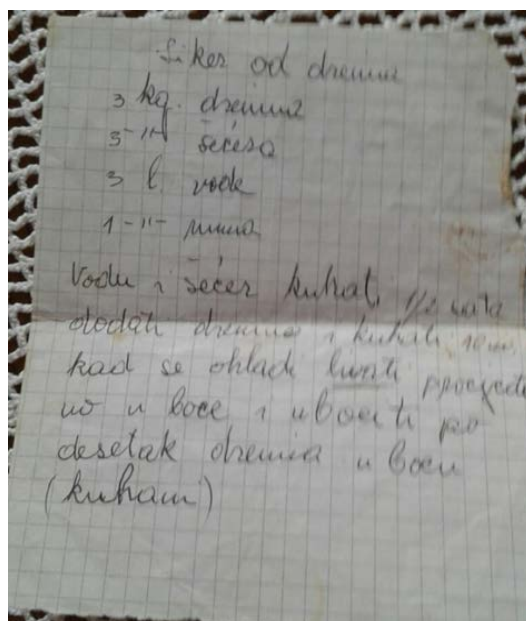 Liker od drenina
3 kg. drenina
3 -"- šećera
3 l. vode
1 -"- ruma
Vodu i šećer kuhati 1/2 sata
dodati drenine i kuhati 10 m
kad se ohladi procjedi
u boce i ubaciti po
desetak drenina u bocu
(kuhani)